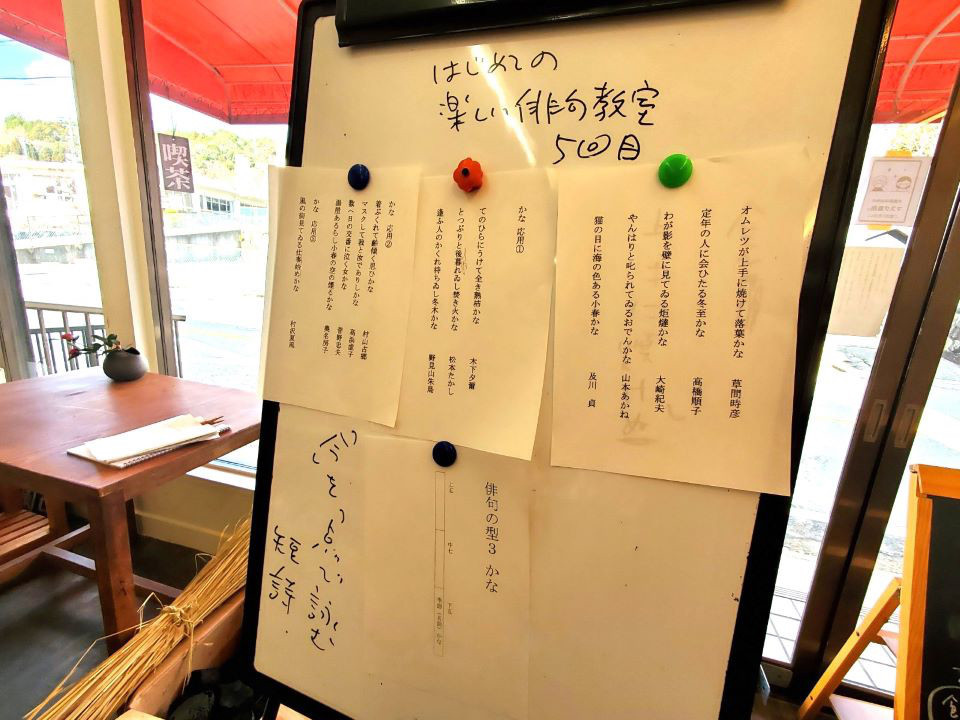 はじめての
楽しい俳句教室
5回目
オムレツが上手に焼けて落葉かな 草間時彦
定年の人に会ひたる冬至かな 高橋順子
わが影を壁に見てゐる炬燵かな 大崎紀夫
やんはりと叱られてゐるおでんかな 山本あかね
猫の日に海の色ある小春かな 及川 貞
かな 応用①
てのひらにうけて全き熟柿かな 木下夕爾
とつぷりと後暮れゐし焚き火かな 松本たかし
逢ふ人のかくれ待ちゐし冬木かな 野見山朱鳥
かな 応用②
着ぶくれて齢傾く思ひかな 村山古郷
マスクして我と汝でありしかな 高浜虚子
数へ日の交番に泣く女かな 菅野忠夫
小春の空の 桑名房子
かな 応用③
風の街見てゐる仕事始めかな 村沢夏風
俳句の型3 かな
上五 中七 下五
季語(名詞)かな
今を
点で詠む
短詩.
喫茶